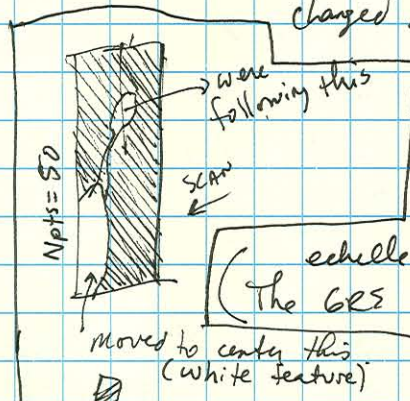 changed
were
following this
Npts=50
SCAN
echelle
The GRS
moved to center this
(white feature)